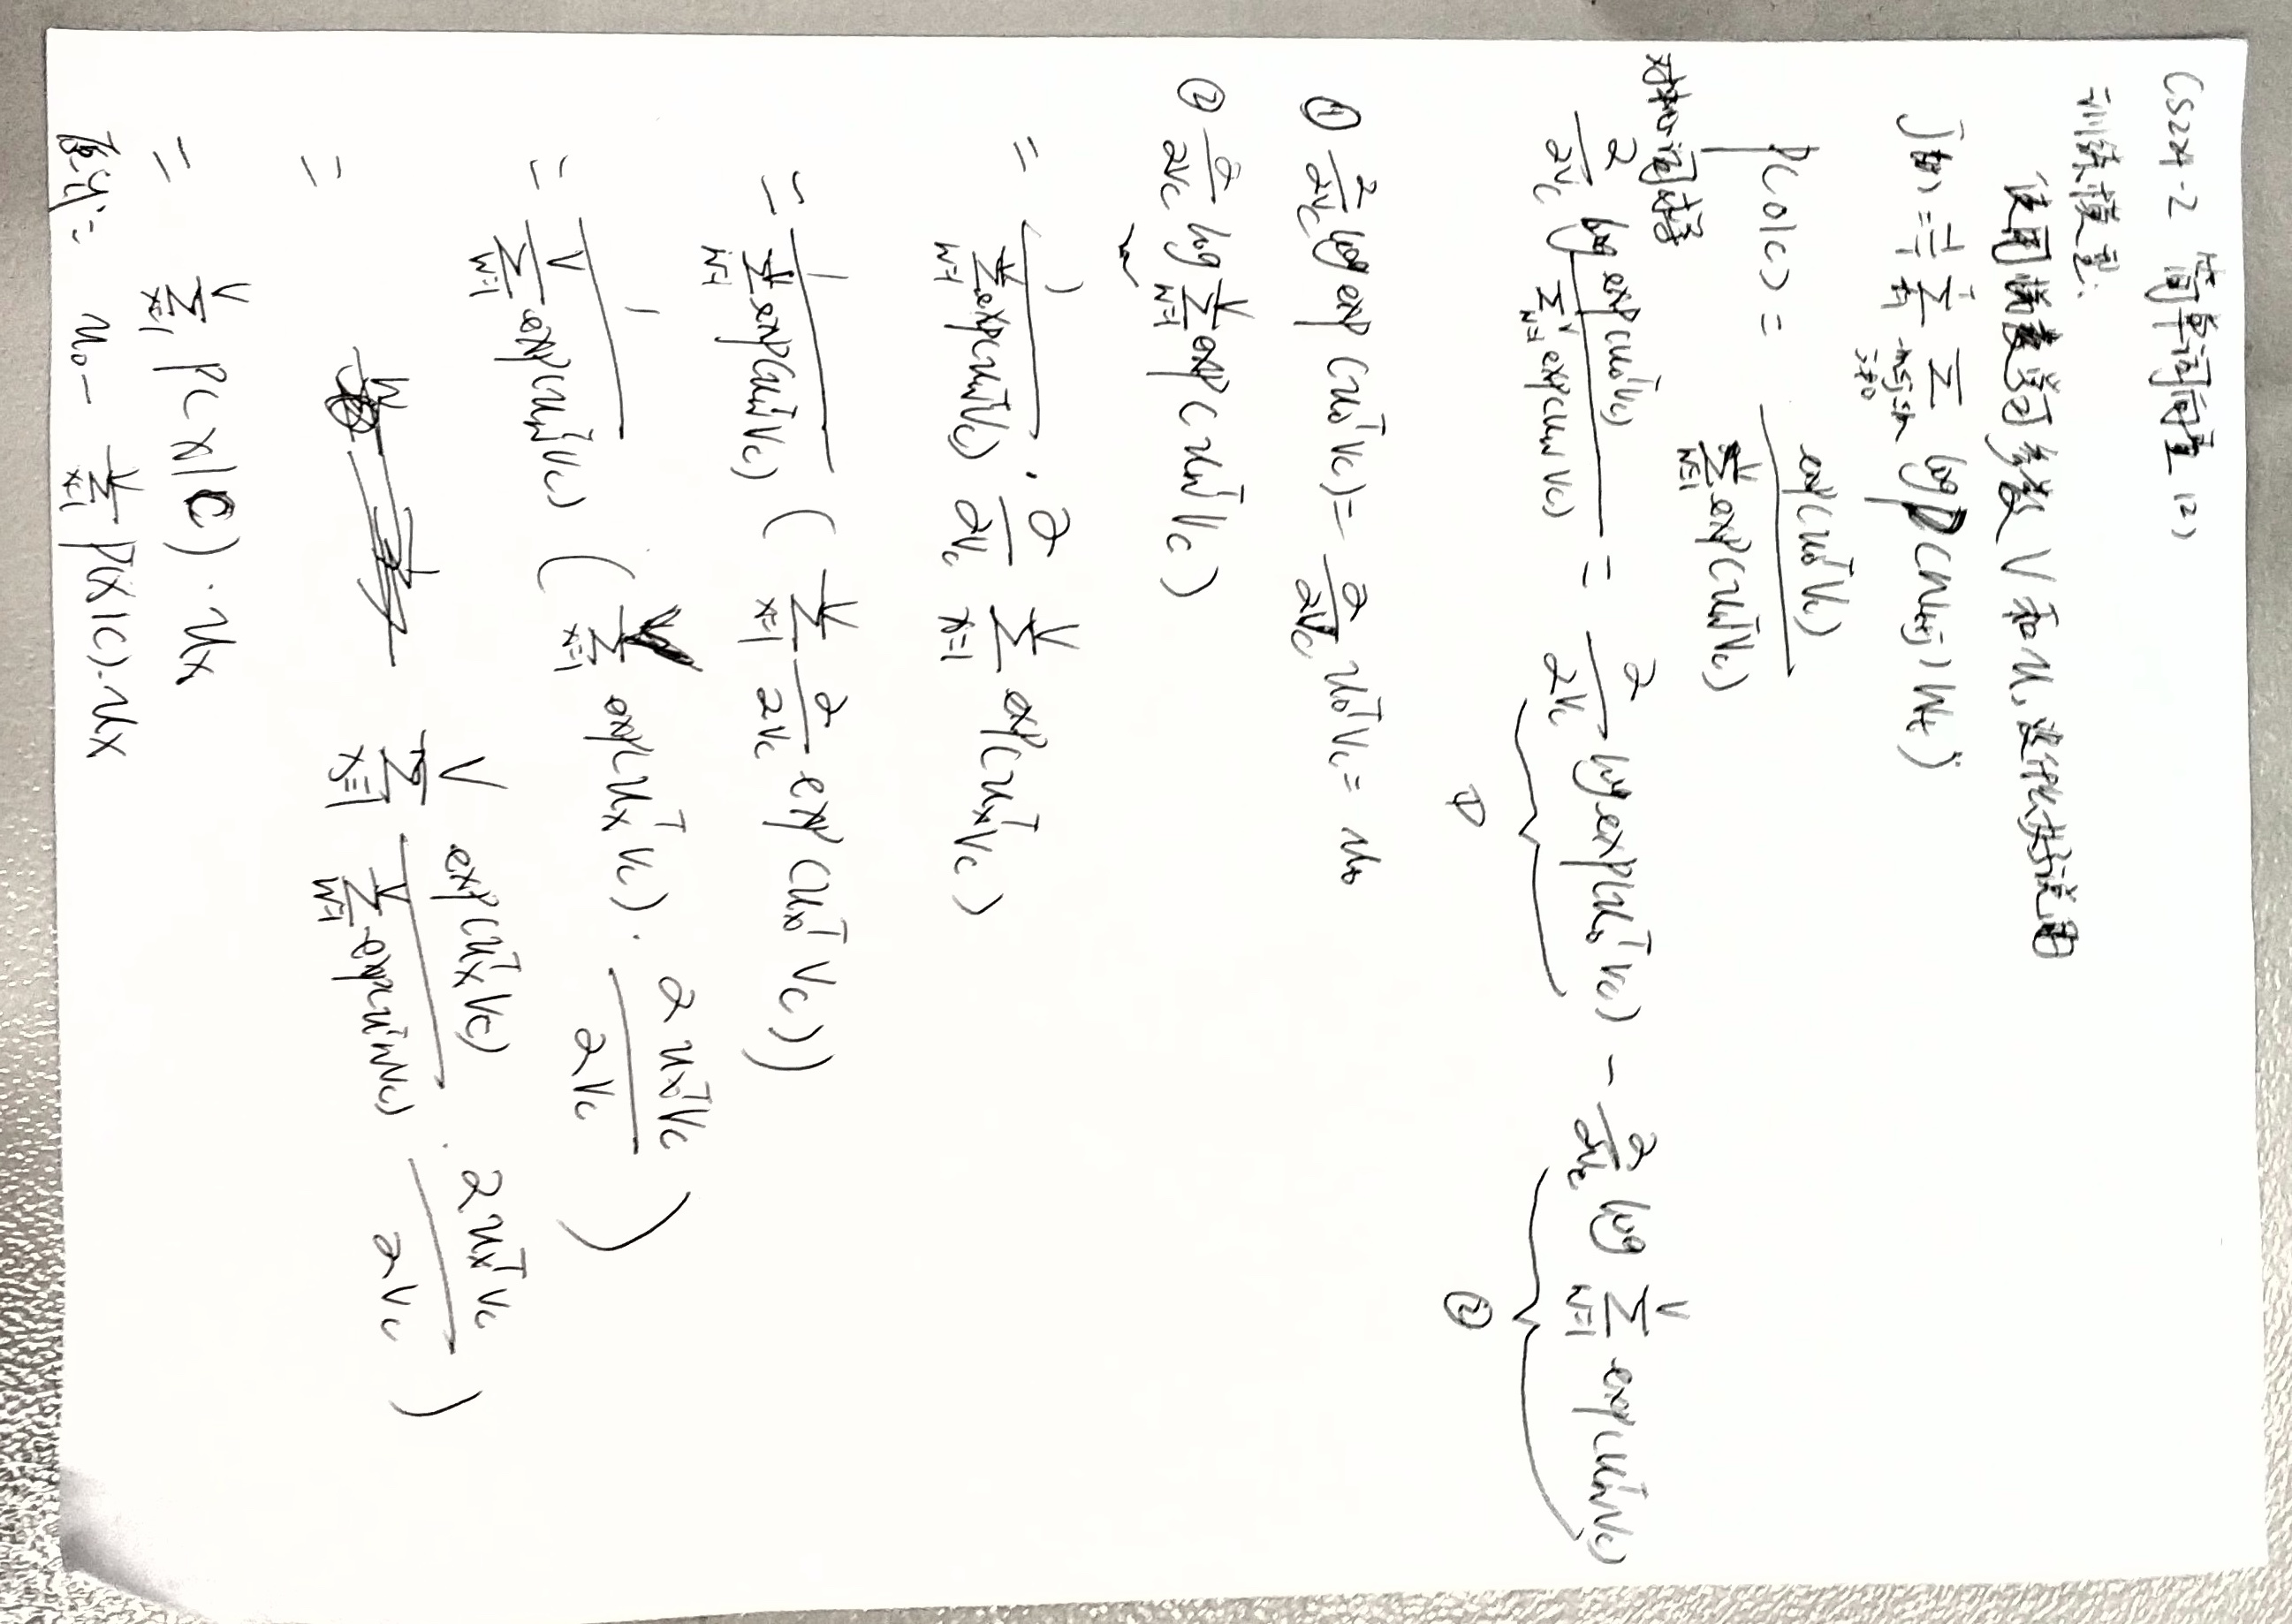 CS224-2 简单词向量 (2)
训练模型:
使用梯度学习参数 V 和 u, 
J(θ) = \frac{1}{T} \sum_{t=1}^{T} \sum_{-m≤j≤m, j≠0} log P(W_{t+j} | W_t)
P(o|c) = \frac{exp(u_o^T V_c)}{\sum_{w=1}^{V} exp(u_w^T V_c)}
对中心词求导
\frac{∂}{∂V_c} log \frac{exp(u_o^T V_c)}{\sum_{w=1}^{V} exp(u_w V_c)} = \frac{∂}{∂V_c} log exp(u_o^T V_c) - \frac{∂}{∂V_c} log \sum_{w=1}^{V} exp(u_w^T V_c)
① ②
① \frac{∂}{∂V_c} log exp(u_o^T V_c) = \frac{∂}{∂V_c} u_o^T V_c = u_o
② \frac{∂}{∂V_c} log \sum_{w=1}^{V} exp(u_w^T V_c)
= \frac{1}{\sum_{w=1}^{V} exp(u_w^T V_c)} · \frac{∂}{∂V_c} \sum_{x=1}^{V} exp(u_x^T V_c)
= \frac{1}{\sum_{w=1}^{V} exp(u_w^T V_c)} ( \sum_{x=1}^{V} \frac{∂}{∂V_c} exp(u_x^T V_c))
= \frac{1}{\sum_{w=1}^{V} exp(u_w^T V_c)} ( \sum_{x=1}^{V} exp(u_x^T V_c) · \frac{∂u_x^T V_c}{∂V_c} )
= \sum_{x=1}^{V} \frac{exp(u_x^T V_c)}{\sum_{w=1}^{V} exp(u_w^T V_c)} · \frac{∂u_x^T V_c}{∂V_c} )
= \sum_{x=1}^{V} P(x|c) · u_x
原式= u_o - \sum_{x=1}^{V} P(x|c) · u_x